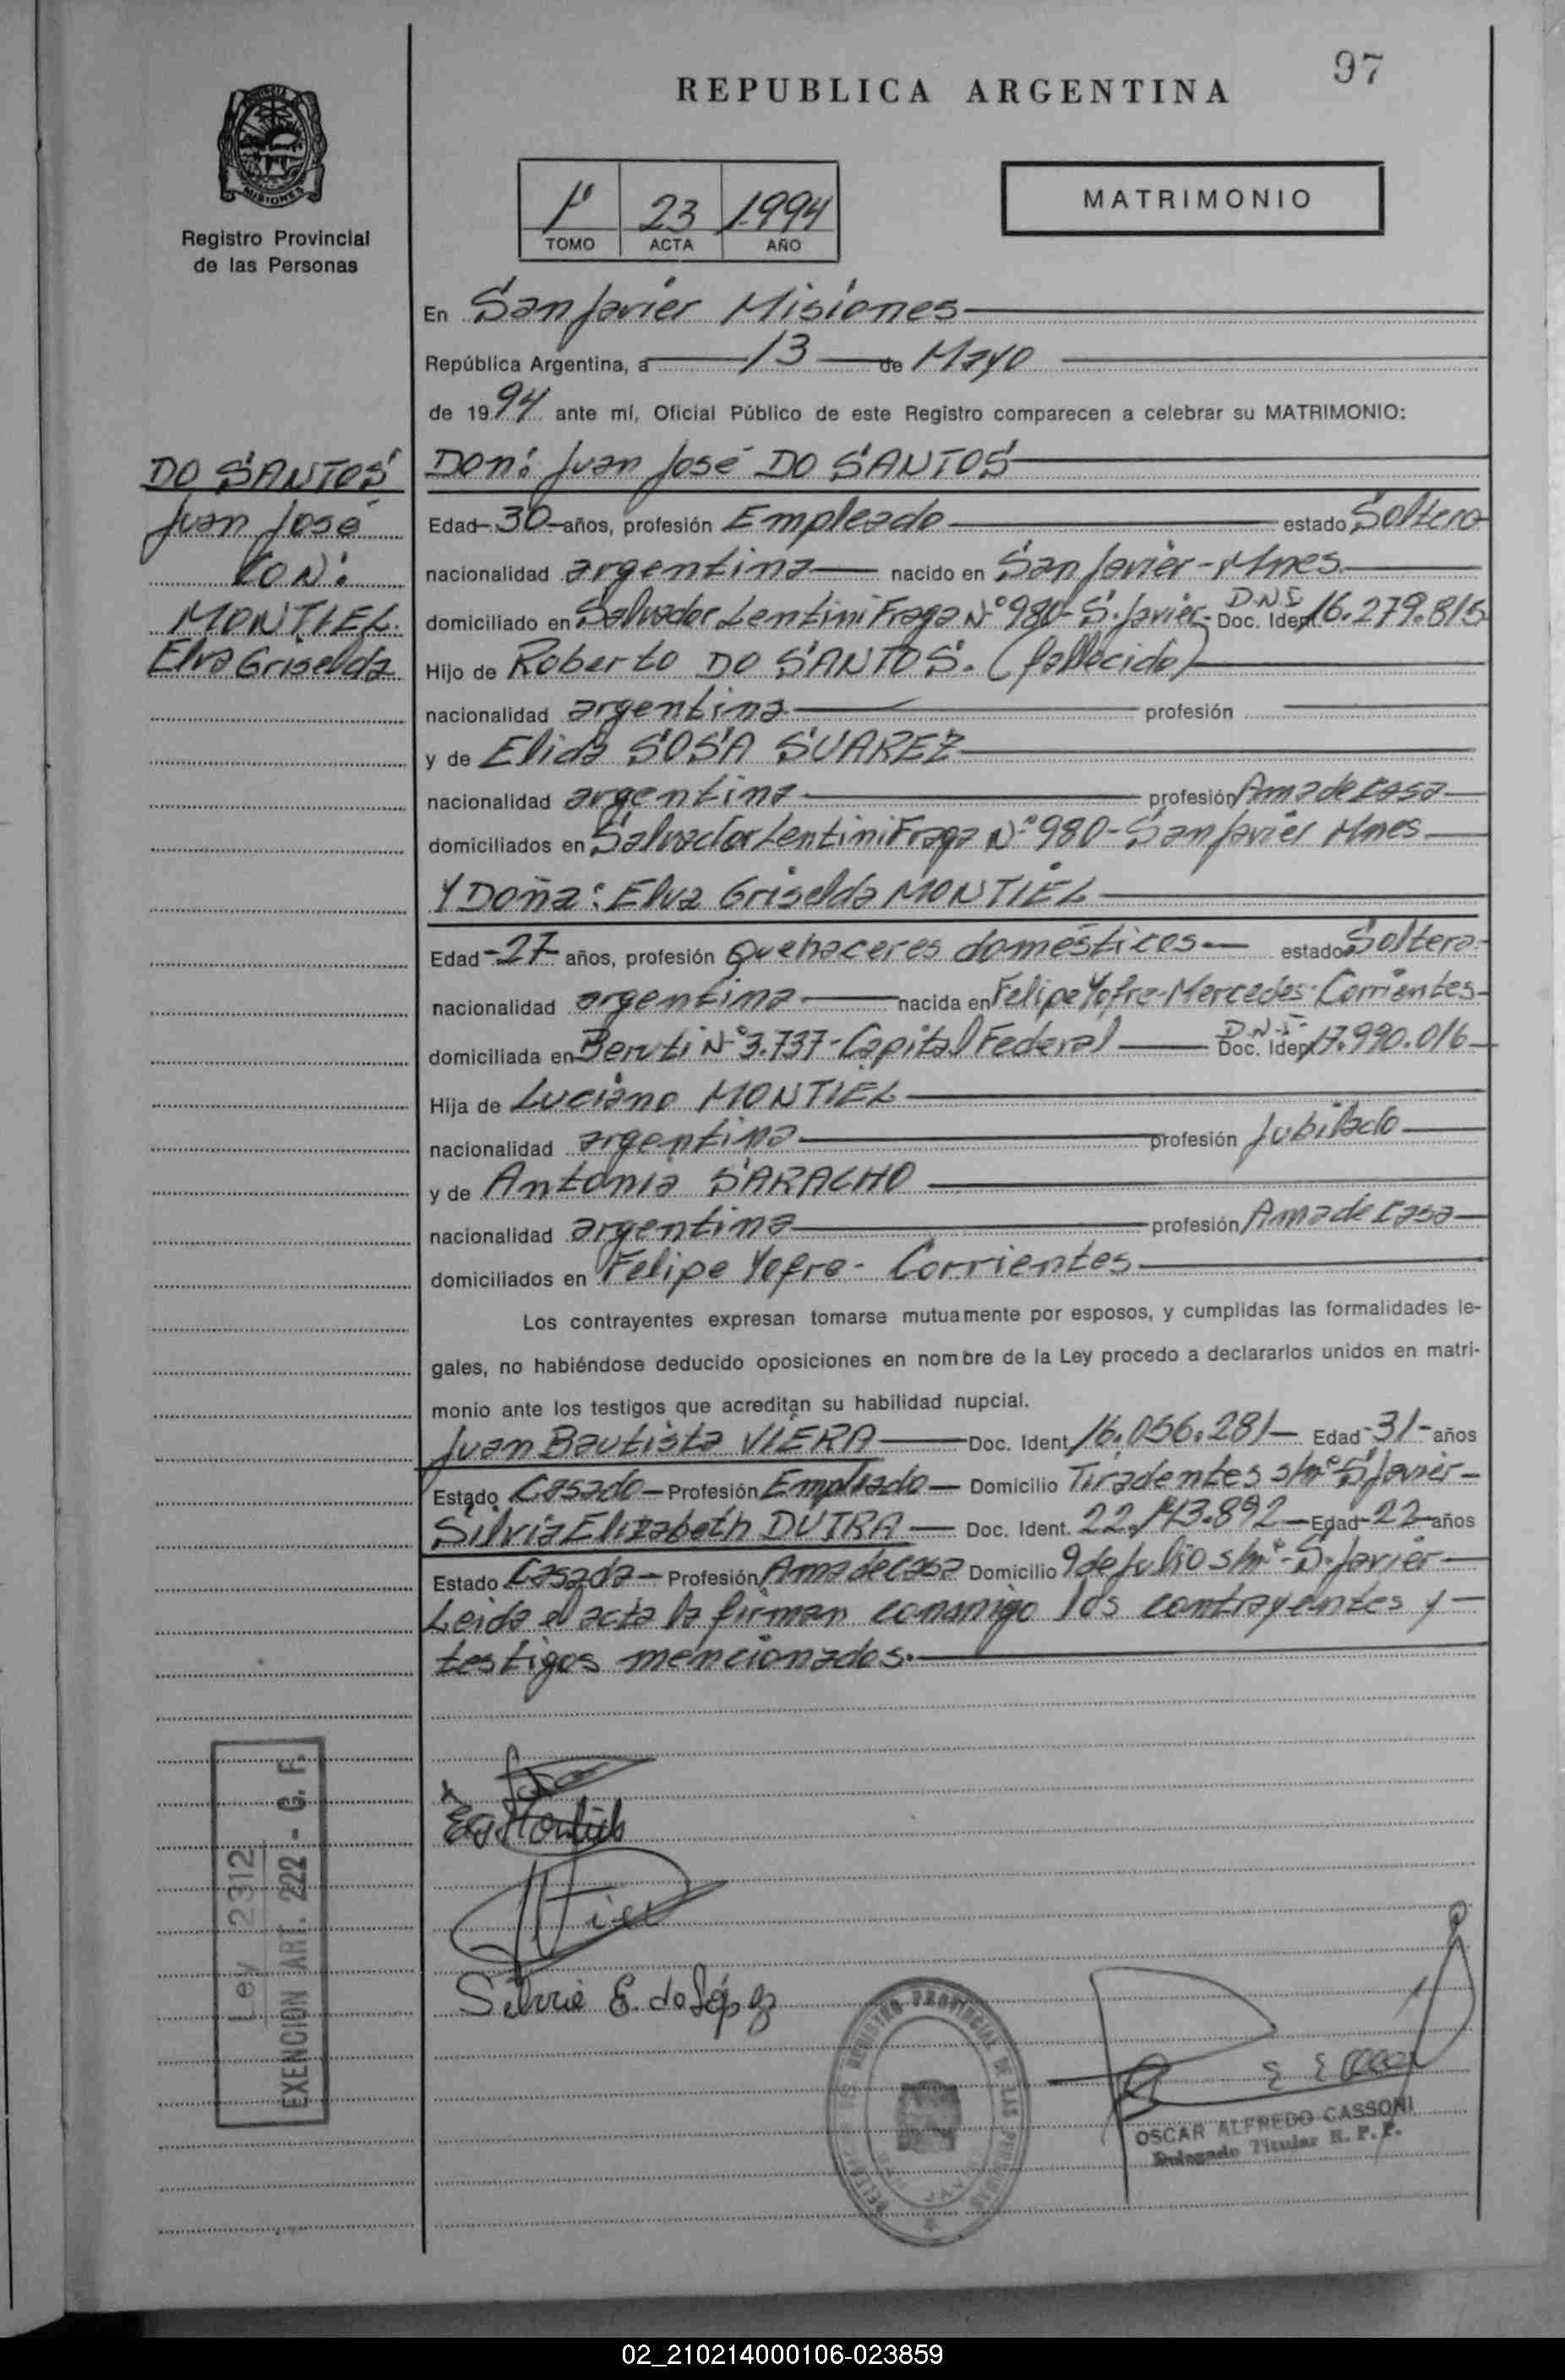 97
REPUBLICA ARGENTINA
PROVINCIA
MISIONES
Registro Provincial
de las Personas
1º 23 1994
TOMO ACTA AÑO
MATRIMONIO
En San Javier Misiones
República Argentina, a 13 de Mayo
de 1994 ante mí, Oficial Público de este Registro comparecen a celebrar su MATRIMONIO:
DO SANTOS
Juan José
CON:
MONTIEL.
Elva Griselda
Don: Juan José DO SANTOS
Edad - 30 - años, profesión Empleado estado Soltero
nacionalidad argentina nacido en San Javier - Mnes.
domiciliado en Salvador Lentini Fraga Nº 980 - S. Javier - D.N.I Doc. Ident. 16.279.815
Hijo de Roberto DO SANTOS. (fallecido)
nacionalidad argentina profesión
y de Elida SOSA SUAREZ
nacionalidad argentina profesión Ama de casa
domiciliados en Salvador Lentini Fraga Nº 980 - San Javier Mnes
Y Doña: Elva Griselda MONTIEL
Edad - 27 - años, profesión Quehaceres domésticos estado Soltera
nacionalidad argentina nacida en Felipe Yofre - Mercedes - Corrientes
domiciliada en Beruti Nº 3.737 - Capital Federal D.N.I Doc. Ident. 17.990.016
Hija de Luciano MONTIEL
nacionalidad argentina profesión Jubilado
y de Antonia SARACHO
nacionalidad argentina profesión Ama de casa
domiciliados en Felipe Yofre - Corrientes
Los contrayentes expresan tomarse mutuamente por esposos, y cumplidas las formalidades le-
gales, no habiéndose deducido oposiciones en nombre de la Ley procedo a declararlos unidos en matri-
monio ante los testigos que acreditan su habilidad nupcial.
Juan Bautista VIERA Doc. Ident. 16.056.281 Edad - 31 - años
Estado Casado - Profesión Empleado - Domicilio Tiradentes s/nº S. Javier -
Silvia Elizabeth DUTRA Doc. Ident. 22.143.892 - Edad - 22 - años
Estado Casada - Profesión Ama de casa Domicilio 9 de Julio s/nº - S. Javier
Leida el acta la firman conmigo los contrayentes y
testigos mencionados.
Ley 2912
EXENCION ART. 222 - C. F.
Silvia E. de López
REGISTRO PROVINCIAL DE LAS PERSONAS
OSCAR ALFREDO CASSONI
Delegado Titular R. P. P.
02_210214000106-023859